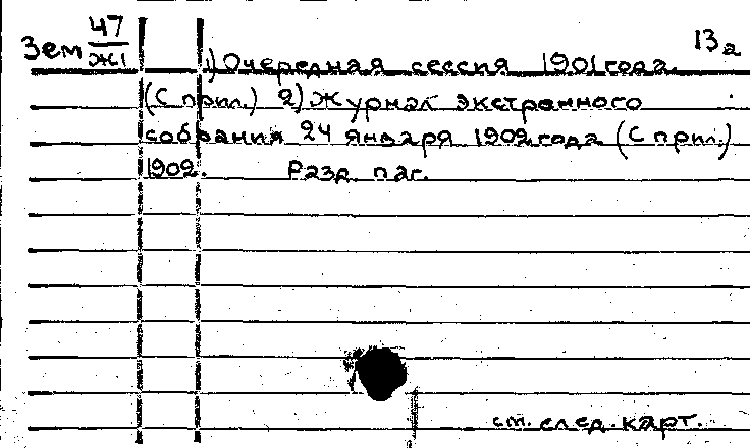 Зем 47/Ж1 13а
1) Очередная сессия 1901 года.
(С прил.) 2) Журнал экстренного
собрания 24 января 1902 года (С прил.)
1902. Разд. паг.
см. след. карт.